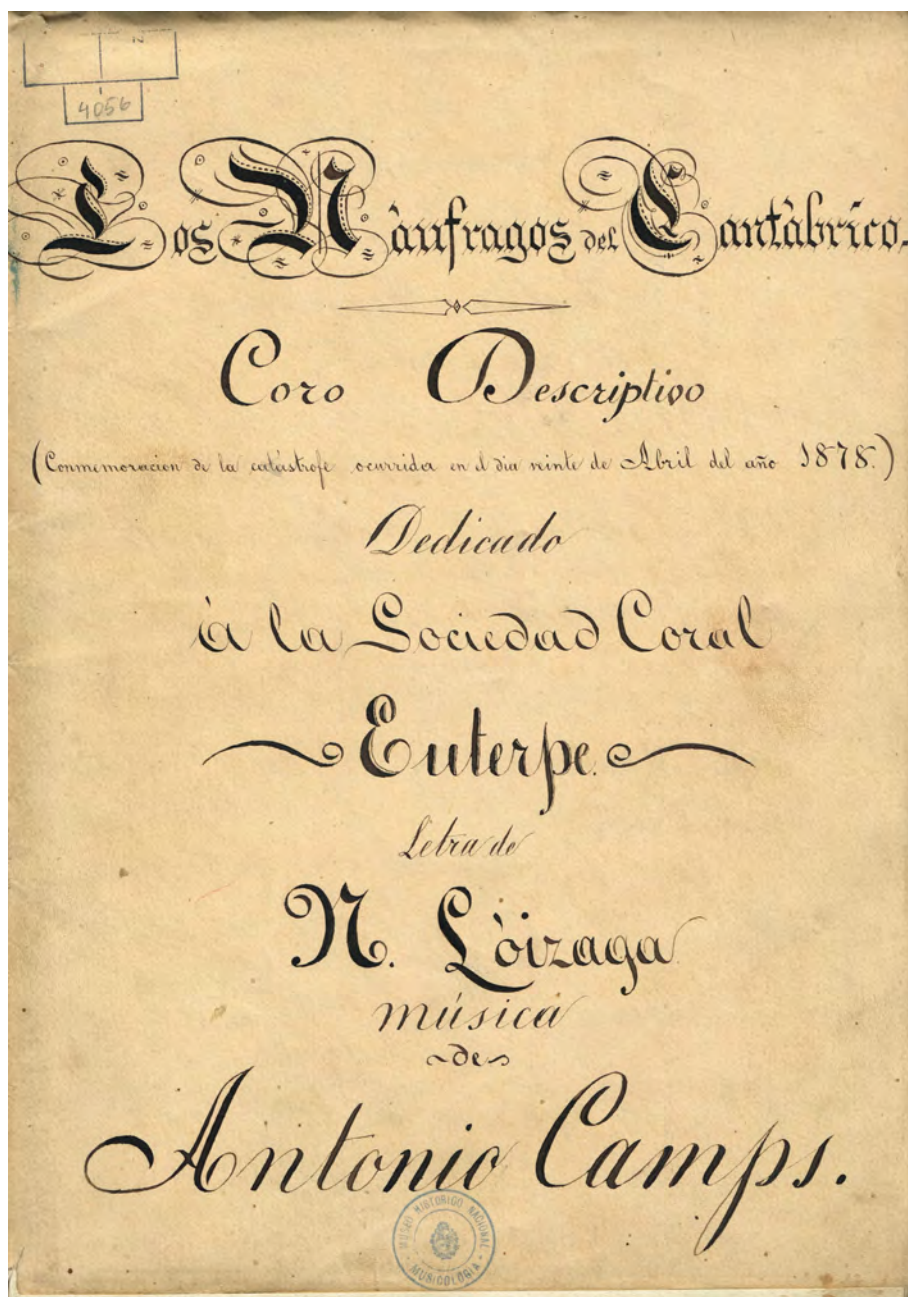 4056
Los Nàufragos del Cantàbrico.
Coro Descriptivo
(Conmemoración de la catástrofe ocurrida en el dia veinte de Abril del año 1878.)
Dedicado
à la Sociedad Coral
Euterpe.
Letra de
N. Lòizaga
música
de
Antonio Camps.
MUSEO HISTORICO NACIONAL
MUSICOLOGIA